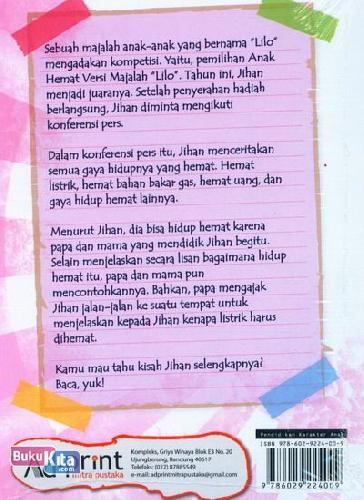 Sebuah majalah anak-anak yang bernama "Lilo"
mengadakan kompetisi. Yaitu, pemilihan Anak
Hemat Versi Majalah "Lilo". Tahun ini, Jihan
menjadi juaranya. Setelah penyerahan hadiah
berlangsung, Jihan diminta mengikuti
konferensi pers.
Dalam konferensi pers itu, Jihan menceritakan
semua gaya hidupnya yang hemat. Hemat
listrik, hemat bahan bakar gas, hemat uang, dan
gaya hidup hemat lainnya.
Menurut Jihan, dia bisa hidup hemat karena
papa dan mama yang mendidik Jihan begitu.
Selain menjelaskan secara lisan bagaimana hidup
hemat itu, papa dan mama pun
mencontohkannya. Bahkan, papa mengajak
Jihan jalan-jalan ke suatu tempat untuk
menjelaskan kepada Jihan kenapa listrik harus
dihemat.
Kamu mau tahu kisah Jihan selengkapnya?
Baca, yuk!
BukuKita.com
Print
mitra pustaka
Kompleks. Griya Winaya Blok E3 No. 20
Ujungberung, Bandung 40617
e-mail: adprintmitrapustaka@gmail.com
Pendidikan Karakter Anak
ISBN 978-602-9224-00-9
9786029224009